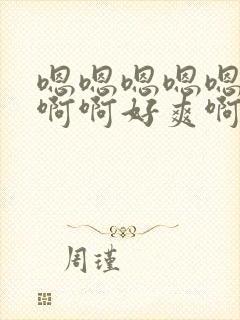 嗯嗯嗯嗯嗯
啊啊好爽啊
周瑾